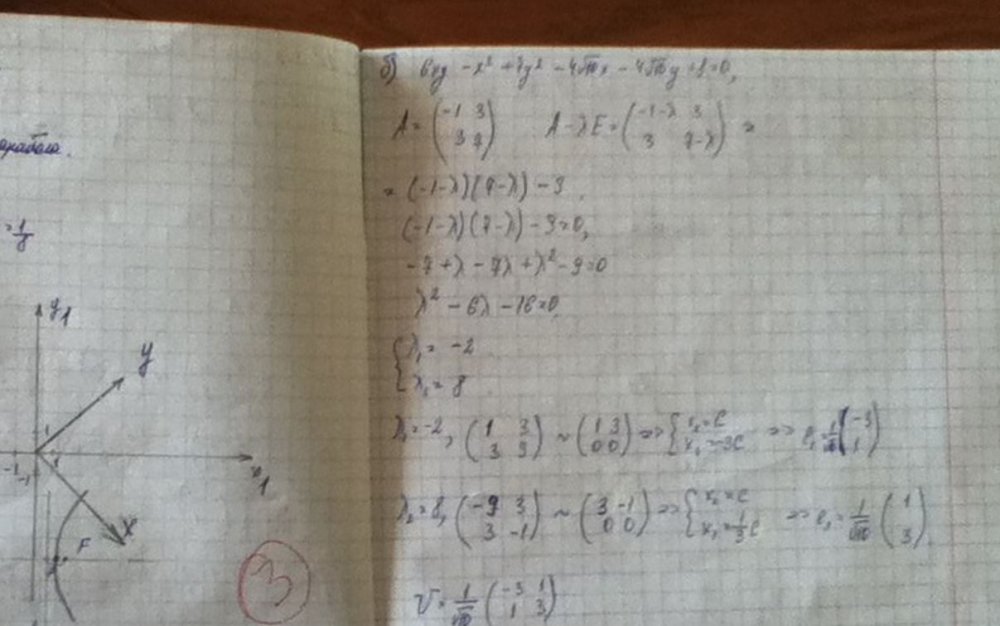 = 1/8
y1
y
-1
-1
x1
x
F
3
б) 6xy - x² + 7y² - 4√10x - 4√10y + 8 = 0,
A = (-1 3; 3 7) A - λE = (-1-λ 3; 3 7-λ) =
= (-1-λ)(7-λ) - 9
(-1-λ)(7-λ) - 9 = 0,
-7 + λ - 7λ + λ² - 9 = 0
λ² - 6λ - 16 = 0
{λ₁ = -2
λ₂ = 8
λ₁ = -2, (1 3; 3 9) ~ (1 3; 0 0) => {x₂ = C; x₁ = -3C => e₁ = 1/√10 (-3; 1)
λ₂ = 8, (-9 3; 3 -1) ~ (3 -1; 0 0) => {x₂ = C; x₁ = 1/3 C => e₂ = 1/√10 (1; 3)
V = 1/√10 (-3 1; 1 3)